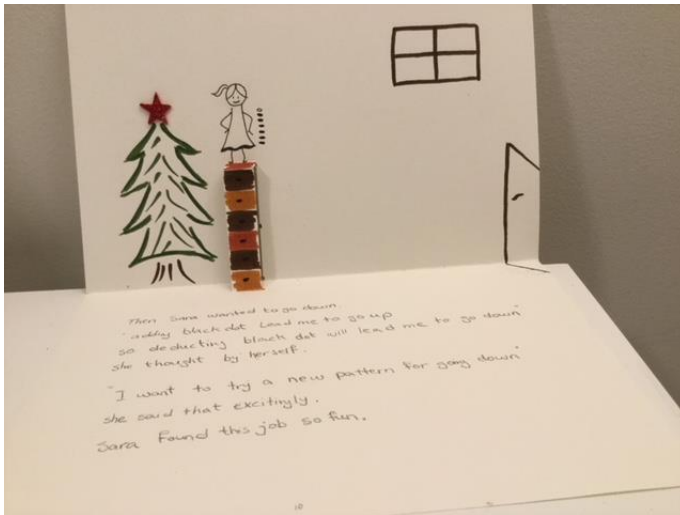 Then Sara wanted to go down.
"adding black dot Lead me to go up
so deducting black dot will lead me to go down"
she thought by herself.
"I want to try a new pattern for going down"
she said that excitingly.
Sara Found this job so fun.